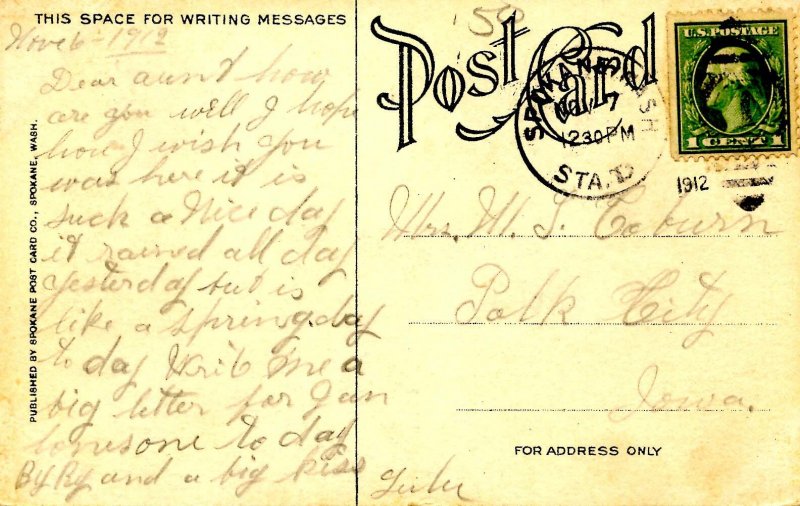 THIS SPACE FOR WRITING MESSAGES
Nov 6-1912
Dear aunt how
are you well I hope
how I wish you
was here it is
such a Nice day
it rained all day
yesterday but is
like a spring day
to day Write me a
big letter for I am
lonesome to day
By By and a big kiss
Lulu
PUBLISHED BY SPOKANE POST CARD CO., SPOKANE, WASH.
150
Post Card
SPOKANE, WASH
7
1230PM
STA.
1912
U.S. POSTAGE
1 CENT 1
Mrs. M. S. Coburn
Polk City
Iowa.
FOR ADDRESS ONLY